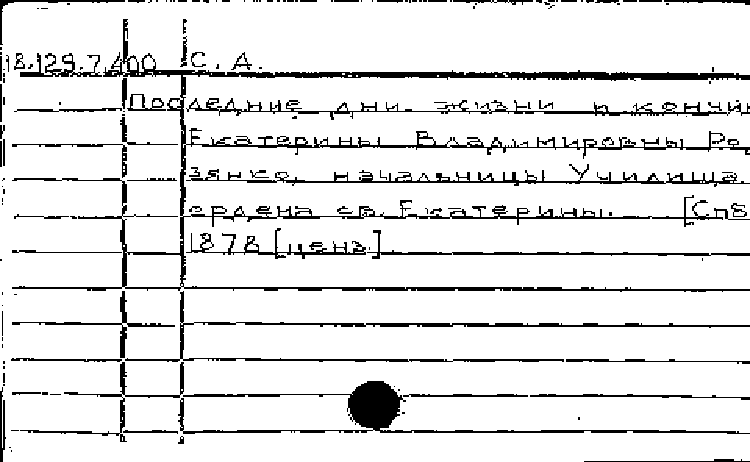 18.129.7.400 С. А.
Последние дни жизни и кончин
Екатерины Владимировны Род
зянко, начальницы Училища
ордена св. Екатерины. [Спб
1878 [ценз.]